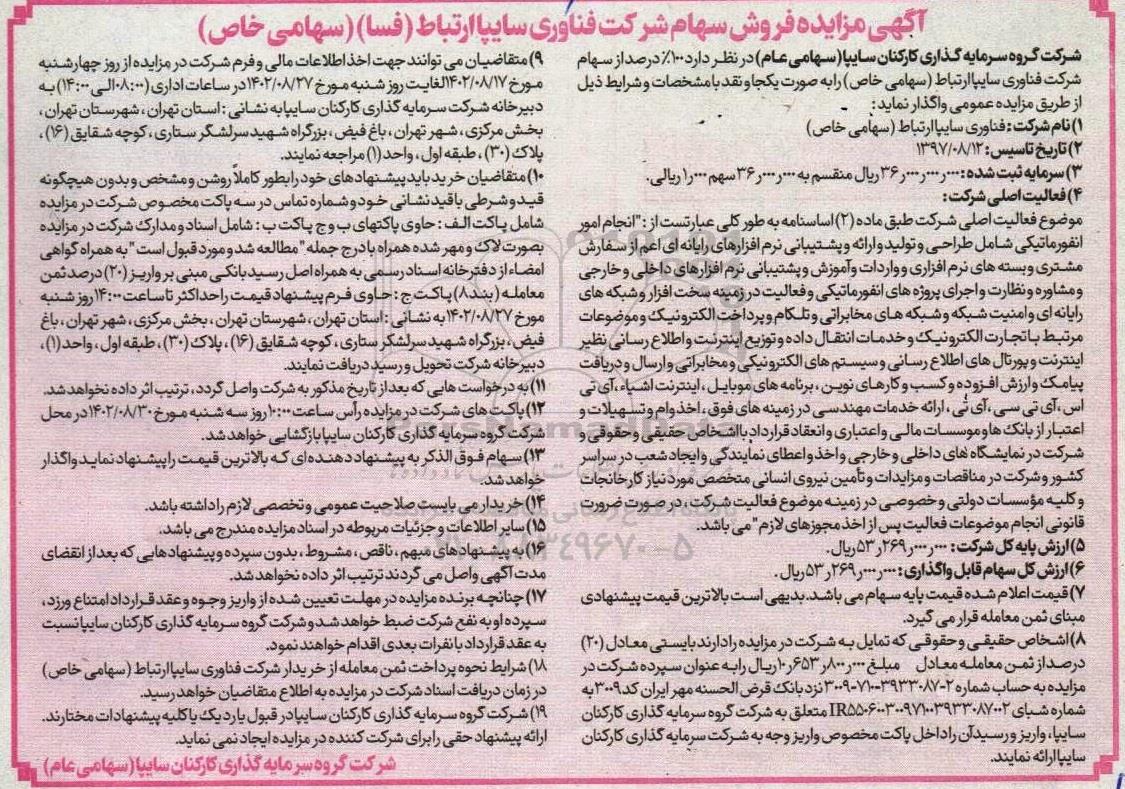 آگهی مزایده فروش سهام شرکت فناوری سایپا ارتباط (فسا) (سهامی خاص)
شرکت گروه سرمایه گذاری کارکنان سایپا (سهامی عام) در نظر دارد ۱۰۰٪ درصد از سهام
شرکت فناوری سایپا ارتباط (سهامی خاص) را به صورت یکجا و نقد با مشخصات و شرایط ذیل
از طریق مزایده عمومی واگذار نماید:
۱) نام شرکت: فناوری سایپا ارتباط (سهامی خاص)
۲) تاریخ تاسیس: ۱۳۹۷/۰۸/۱۲
۳) سرمایه ثبت شده: ۳۶٫۰۰۰٫۰۰۰٫۰۰۰ ریال منقسم به ۳۶٫۰۰۰٫۰۰۰ سهم ۱٫۰۰۰ ریالی.
۴) فعالیت اصلی شرکت:
موضوع فعالیت اصلی شرکت طبق ماده (۲) اساسنامه به طور کلی عبارتست از: "انجام امور
انفورماتیکی شامل طراحی و تولید و ارائه و پشتیبانی نرم افزارهای رایانه ای اعم از سفارش
مشتری و بسته های نرم افزاری و واردات و آموزش و پشتیبانی نرم افزارهای داخلی و خارجی
و مشاوره و نظارت و اجرای پروژه های انفورماتیکی و فعالیت در زمینه سخت افزار و شبکه های
رایانه ای و امنیت شبکه و شبکه های مخابراتی و تلکام و پرداخت الکترونیک و موضوعات
مرتبط با تجارت الکترونیک و خدمات انتقال داده و توزیع اینترنت و اطلاع رسانی نظیر
اینترنت و پورتال های اطلاع رسانی و سیستم های الکترونیکی و مخابراتی و ارسال و دریافت
پیامک و ارزش افزوده و کسب و کارهای نوین، برنامه های موبایل، اینترنت اشیاء، آی تی
اس، آی تی سی، آی تی، ارائه خدمات مهندسی در زمینه های فوق، اخذ وام و تسهیلات و
اعتبار از بانک ها و موسسات مالی و اعتباری و انعقاد قرارداد با اشخاص حقیقی و حقوقی و
شرکت در نمایشگاه های داخلی و خارجی و اخذ و اعطای نمایندگی و ایجاد شعب در سراسر
کشور و شرکت در مناقصات و مزایدات و تأمین نیروی انسانی متخصص مورد نیاز کارخانجات
و کلیه مؤسسات دولتی و خصوصی در زمینه موضوع فعالیت شرکت، در صورت ضرورت
قانونی انجام موضوعات فعالیت پس از اخذ مجوزهای لازم" می باشد.
۵) ارزش پایه کل شرکت: ۵۳٫۲۶۹٫۰۰۰٫۰۰۰ ریال.
۶) ارزش کل سهام قابل واگذاری: ۵۳٫۲۶۹٫۰۰۰٫۰۰۰ ریال.
۷) قیمت اعلام شده قیمت پایه سهام می باشد. بدیهی است بالاترین قیمت پیشنهادی
مبنای ثمن معامله قرار می گیرد.
۸) اشخاص حقیقی و حقوقی که تمایل به شرکت در مزایده را دارند بایستی معادل (۲۰)
درصد از ثمن معامله معادل مبلغ ۱۰٫۶۵۳٫۸۰۰٫۰۰۰ ریال را به عنوان سپرده شرکت در
مزایده به حساب شماره ۲-۳۰۰۹-۷۱۰-۳۹۳۳۰۸۷ نزد بانک قرض الحسنه مهر ایران کد ۳۰۰۹ به
شماره شبای IR۵۵۰۶۰۰۳۰۰۹۷۱۰۰۳۹۳۳۰۸۷۰۰۲ متعلق به شرکت گروه سرمایه گذاری کارکنان
سایپا، واریز و رسید آن را داخل پاکت مخصوص واریز وجه به شرکت سرمایه گذاری کارکنان
سایپا ارائه نمایند.
۹) متقاضیان می توانند جهت اخذ اطلاعات مالی و فرم شرکت در مزایده از روز چهارشنبه
مورخ ۱۴۰۲/۰۸/۱۷ لغایت روز شنبه مورخ ۱۴۰۲/۰۸/۲۷ در ساعات اداری (۰۸:۰۰ الی ۱۴:۰۰) به
دبیرخانه شرکت سرمایه گذاری کارکنان سایپا به نشانی: استان تهران، شهرستان تهران،
بخش مرکزی، شهر تهران، باغ فیض، بزرگراه شهید سرلشگر ستاری، کوچه شقایق (۱۶)،
پلاک (۳۰)، طبقه اول، واحد (۱) مراجعه نمایند.
۱۰) متقاضیان خرید باید پیشنهادهای خود را بطور کاملاً روشن و مشخص و بدون هیچگونه
قید و شرطی با قید نشانی خود و شماره تماس در سه پاکت مخصوص شرکت در مزایده
شامل پاکت الف: حاوی پاکتهای ب و ج پاکت ب: شامل اسناد و مدارک شرکت در مزایده
بصورت لاک و مهر شده همراه با درج جمله "مطالعه شد و مورد قبول است" به همراه گواهی
امضاء از دفترخانه اسناد رسمی به همراه اصل رسید بانکی مبنی بر واریز (۲۰) درصد ثمن
معامله (بند ۸) پاکت ج: حاوی فرم پیشنهاد قیمت را حداکثر تا ساعت ۱۴:۰۰ روز شنبه
مورخ ۱۴۰۲/۰۸/۲۷ به نشانی: استان تهران، شهرستان تهران، بخش مرکزی، شهر تهران، باغ
فیض، بزرگراه شهید سرلشگر ستاری، کوچه شقایق (۱۶)، پلاک (۳۰)، طبقه اول، واحد (۱)،
دبیرخانه شرکت تحویل و رسید دریافت نمایند.
۱۱) به درخواست هایی که بعد از تاریخ مذکور به شرکت واصل گردد، ترتیب اثر داده نخواهد شد.
۱۲) پاکت های شرکت در مزایده رأس ساعت ۱۰:۰۰ روز سه شنبه مورخ ۱۴۰۲/۰۸/۳۰ در محل
شرکت گروه سرمایه گذاری کارکنان سایپا بازگشایی خواهد شد.
۱۳) سهام فوق الذکر به پیشنهاد دهنده ای که بالاترین قیمت را پیشنهاد نماید واگذار
خواهد شد.
۱۴) خریدار می بایست صلاحیت عمومی و تخصصی لازم را داشته باشد.
۱۵) سایر اطلاعات و جزئیات مربوطه در اسناد مزایده مندرج می باشد.
۱۶) به پیشنهادهای مبهم، ناقص، مشروط، بدون سپرده و پیشنهادهایی که بعد از انقضای
مدت آگهی واصل می گردند ترتیب اثر داده نخواهد شد.
۱۷) چنانچه برنده مزایده در مهلت تعیین شده از واریز وجوه و عقد قرارداد امتناع ورزد،
سپرده او به نفع شرکت ضبط خواهد شد و شرکت گروه سرمایه گذاری کارکنان سایپا نسبت
به عقد قرارداد با نفرات بعدی اقدام خواهند نمود.
۱۸) شرایط نحوه پرداخت ثمن معامله از خریدار شرکت فناوری سایپا ارتباط (سهامی خاص)
در زمان دریافت اسناد شرکت در مزایده به اطلاع متقاضیان خواهد رسید.
۱۹) شرکت گروه سرمایه گذاری کارکنان سایپا در قبول یا رد یک یا کلیه پیشنهادات مختارند.
ارائه پیشنهاد حقی را برای شرکت کننده در مزایده ایجاد نمی نماید.
شرکت گروه سرمایه گذاری کارکنان سایپا (سهامی عام)